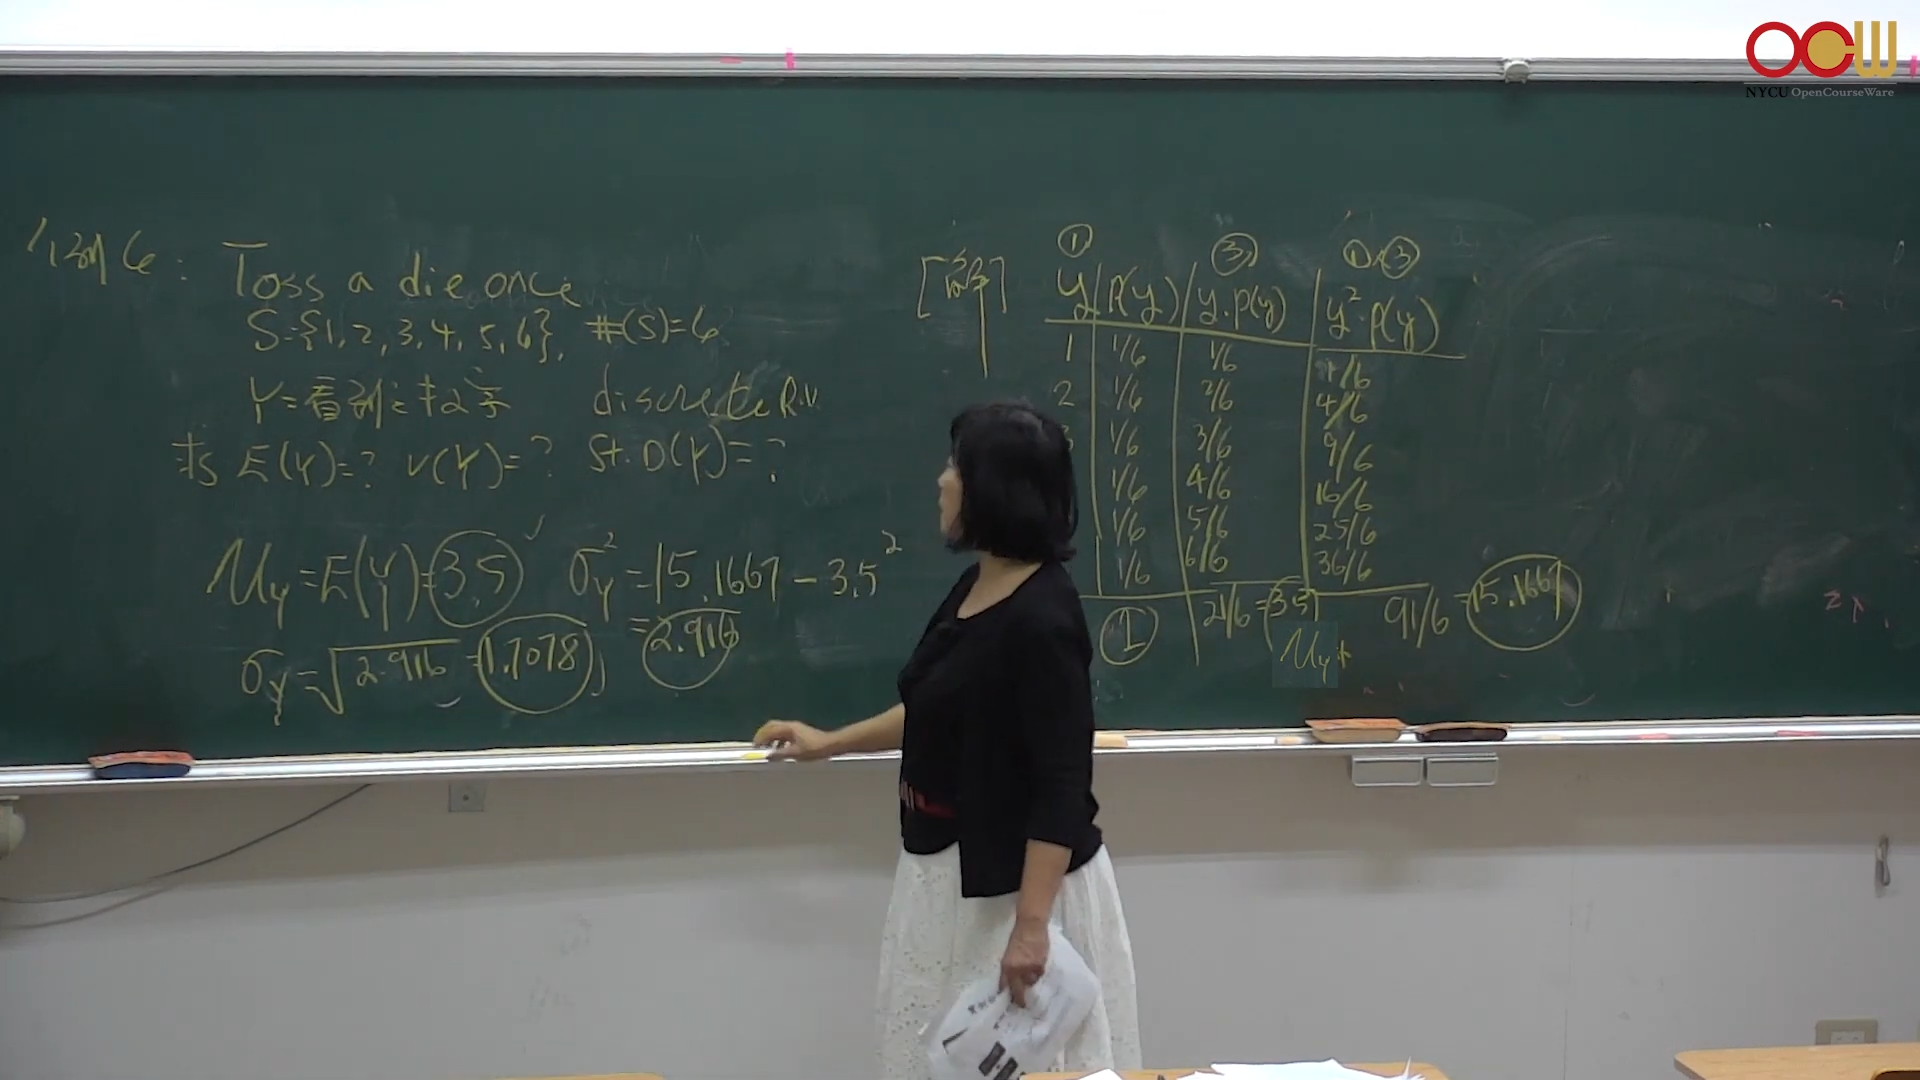 OCW
NYCU OpenCourseWare
例6: Toss a die once
S={1,2,3,4,5,6}, #(S)=6
Y=看到之 discrete R.V
求 E(Y)=? V(Y)=? St.D(Y)=?
μy=E(Y)=3.5 σY²=15.1667-3.5²
=2.916
σY=√2.916=1.7078
[解]
① ③ ①×③
y P(y) y.p(y) y².p(y)
1 1/6 1/6 1/6
2 1/6 2/6 4/6
3 1/6 3/6 9/6
1/6 4/6 16/6
1/6 5/6 25/6
1/6 6/6 36/6
1 21/6=3.5 91/6=15.1667
μy